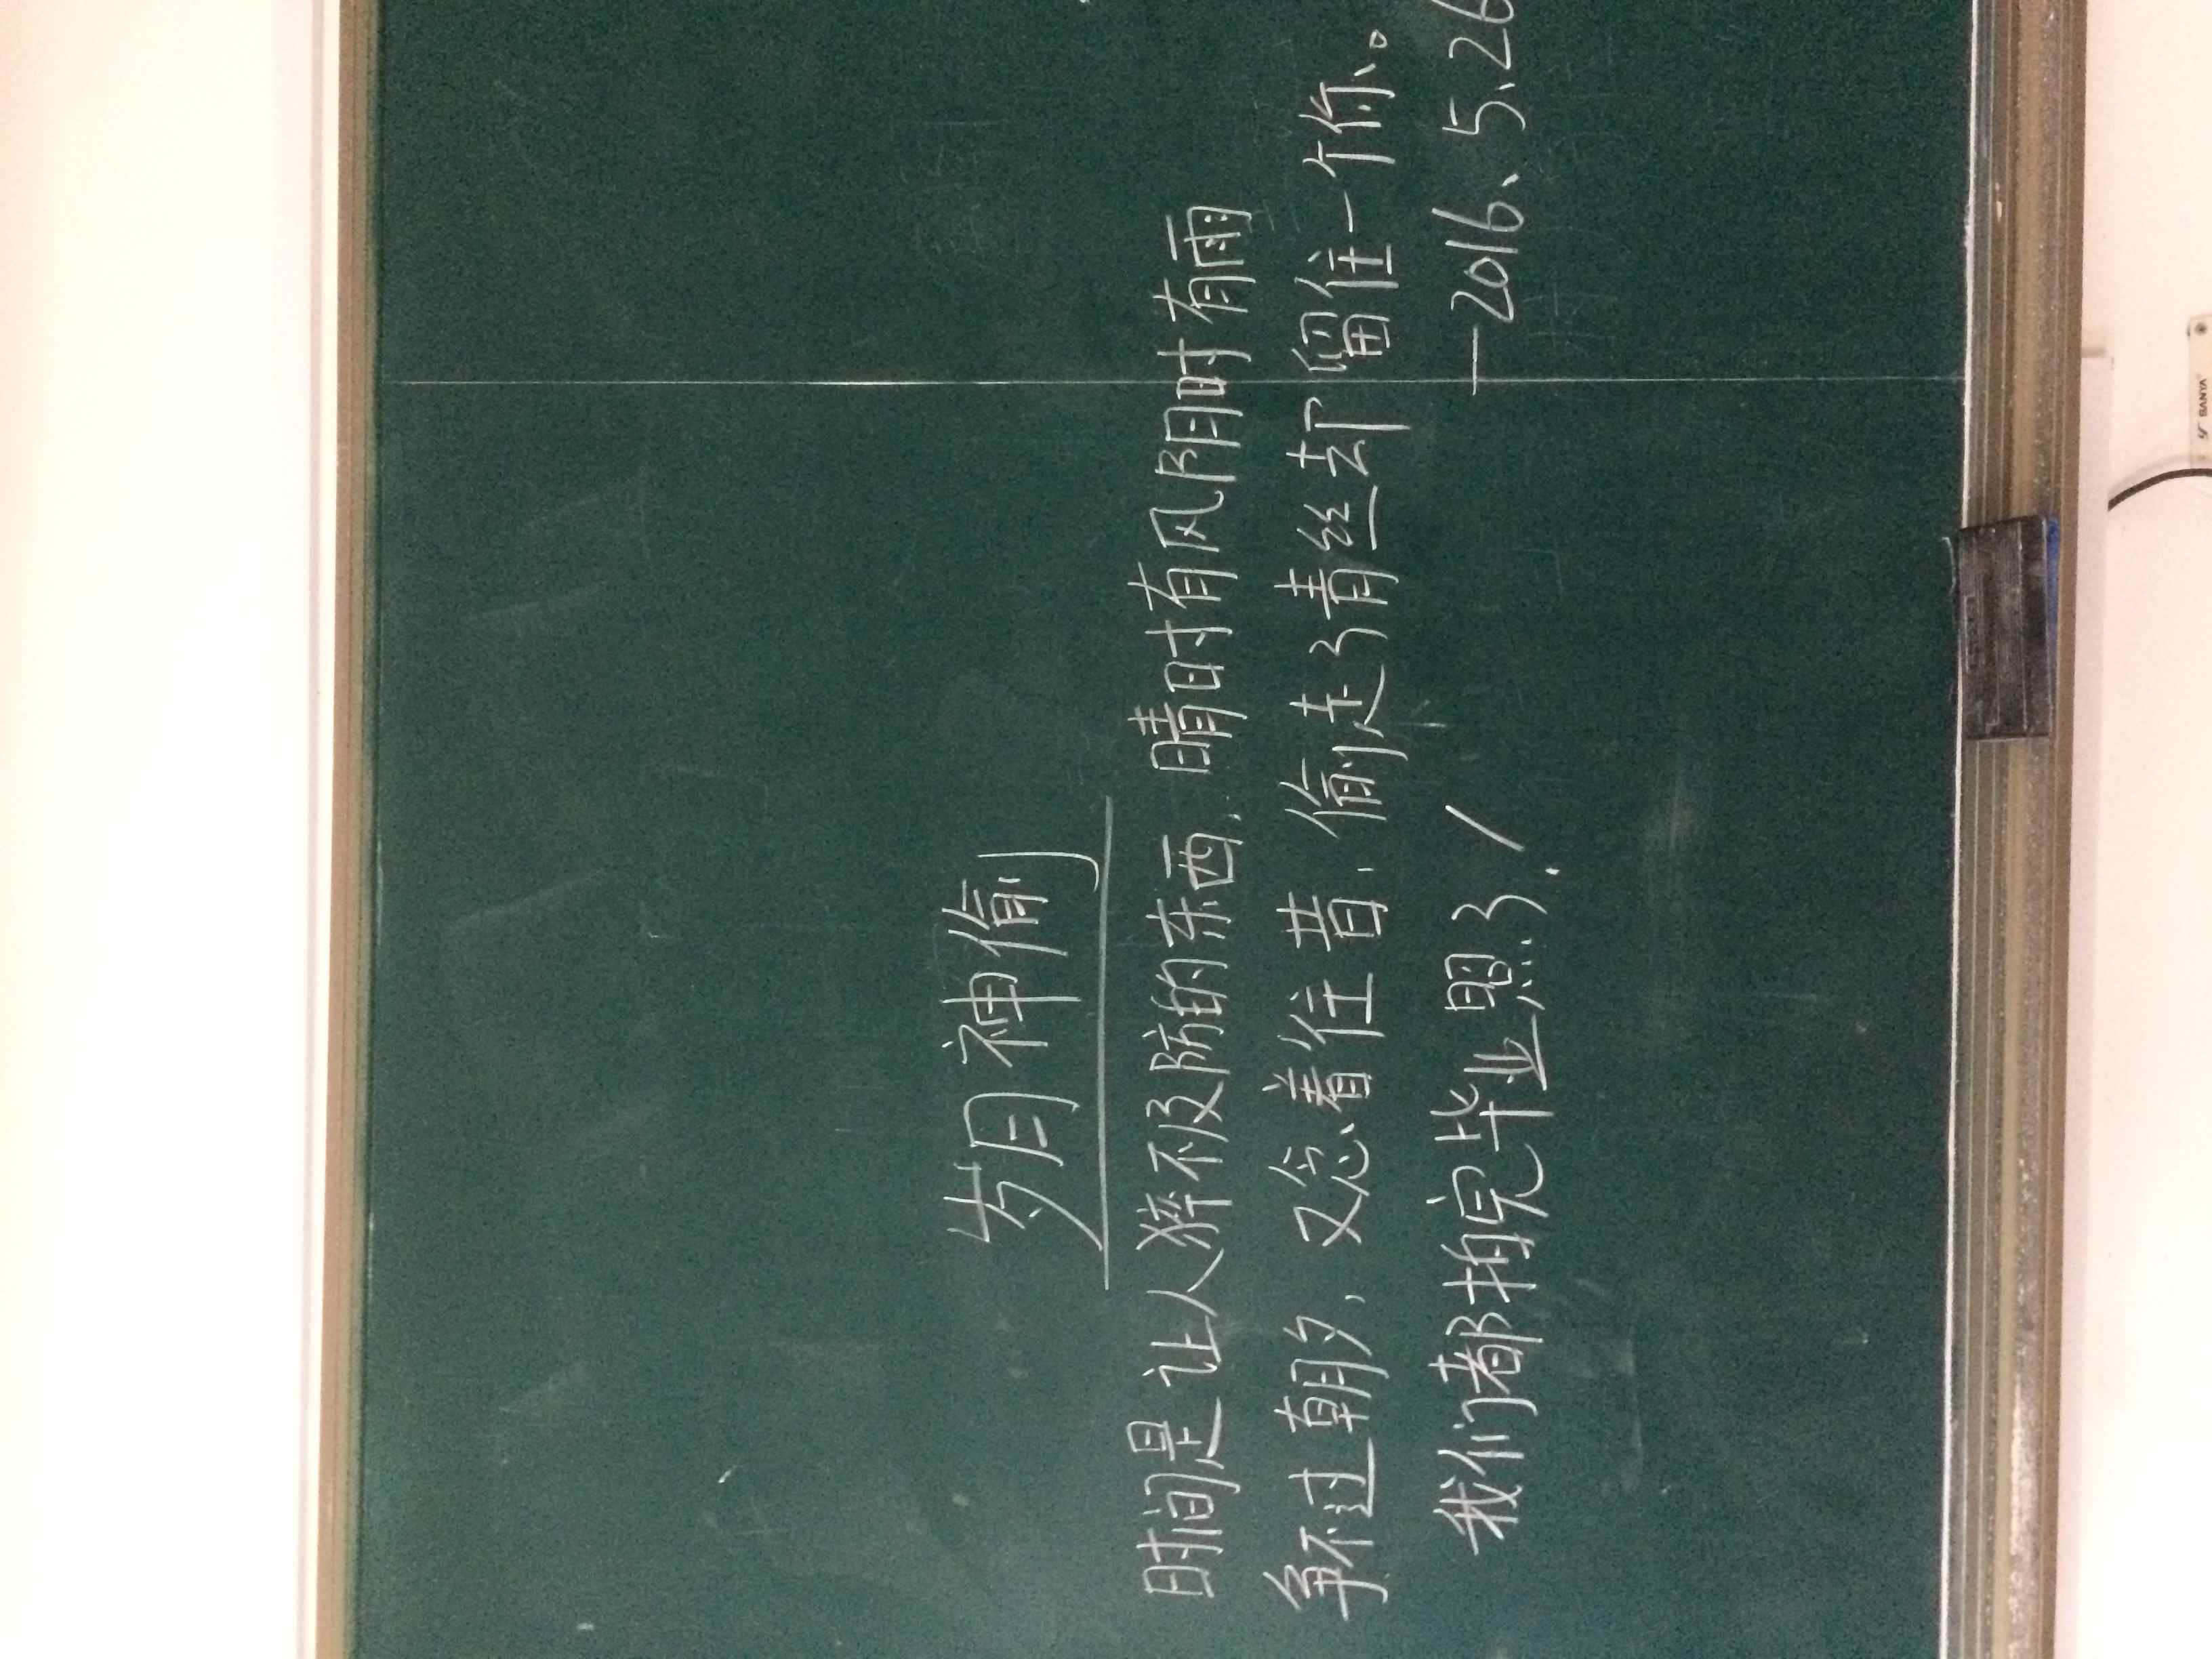 岁月神偷
时间是让人猝不及防的东西,晴时有风阴时有雨
争不过朝夕,又念着往昔,偷走了青丝却留住一个你。
我们都拍完毕业照了!
—2016、5、26
SANYA